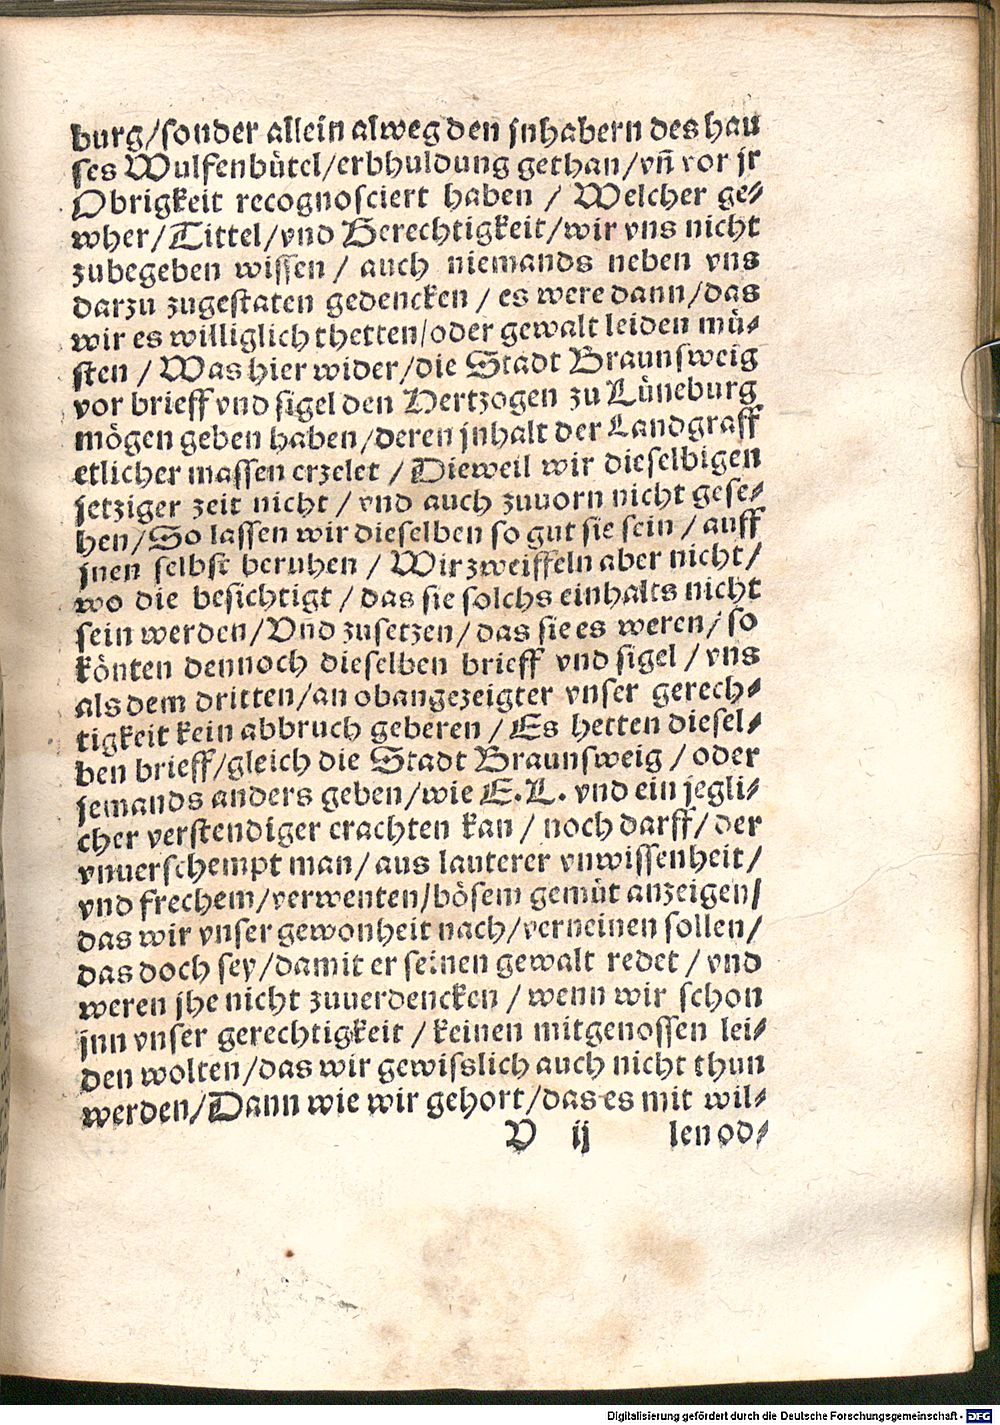 burg/sonder allein alweg den jnhabern des hau
ses Wulfenbütel/erbhuldung gethan/vñ vor jr
Obrigkeit recognosciert haben / Welcher ge⸗
wher/Tittel/vnd Gerechtigkeit/wir vns nicht
zubegeben wissen / auch niemands neben vns
darzu zugestaten gedencken / es were dann/das
wir es williglich thetten/oder gewalt leiden mü⸗
sten / Was hier wider/die Stadt Braunsweig
vor brieff vnd sigel den Hertzogen zu Lüneburg
mögen geben haben/deren jnhalt der Landgraff
etlicher massen erzelet / Dieweil wir dieselbigen
jetziger zeit nicht / vnd auch zuuorn nicht gese⸗
hen/So lassen wir dieselben so gut sie sein / auff
jnen selbst beruhen / Wir zweiffeln aber nicht/
wo die besichtigt / das sie solchs einhalts nicht
sein werden/Vnd zusetzen/das sie es weren/so
könten dennoch dieselben brieff vnd sigel / vns
als dem dritten/an obangezeigter vnser gerech⸗
tigkeit kein abbruch geberen / Es hetten diesel⸗
ben brieff/gleich die Stadt Braunsweig / oder
jemands anders geben/wie E.L. vnd ein jegli⸗
cher verstendiger crachten kan / noch darff/der
vnuerschempt man/aus lauterer vnwissenheit/
vnd frechem/verwenten/bösem gemüt anzeigen/
das wir vnser gewonheit nach/verneinen sollen/
das doch sey/damit er seinen gewalt redet / vnd
weren jhe nicht zuuerdencken / wenn wir schon
jnn vnser gerechtigkeit / keinen mitgenossen lei⸗
den wolten/das wir gewisslich auch nicht thun
werden/Dann wie wir gehort/das es mit wil⸗
V ij len od⸗
Digitalisierung gefördert durch die Deutsche Forschungsgemeinschaft - DFG